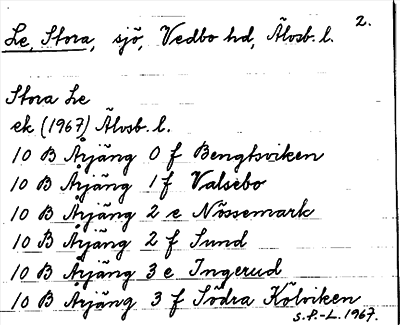 2.
Le, Stora, sjö, Vedbo hd, Älvsb. l.
Stora Le
ek (1967) Älvsb. l.
10 B Årjäng 0 f Bengtsviken
10 B Årjäng 1 f Valsebo
10 B Årjäng 2 e Nössemark
10 B Årjäng 2 f Sund
10 B Årjäng 3 e Ingerud
10 B Årjäng 3 f Södra Kölviken
S.P.-L. 1967.